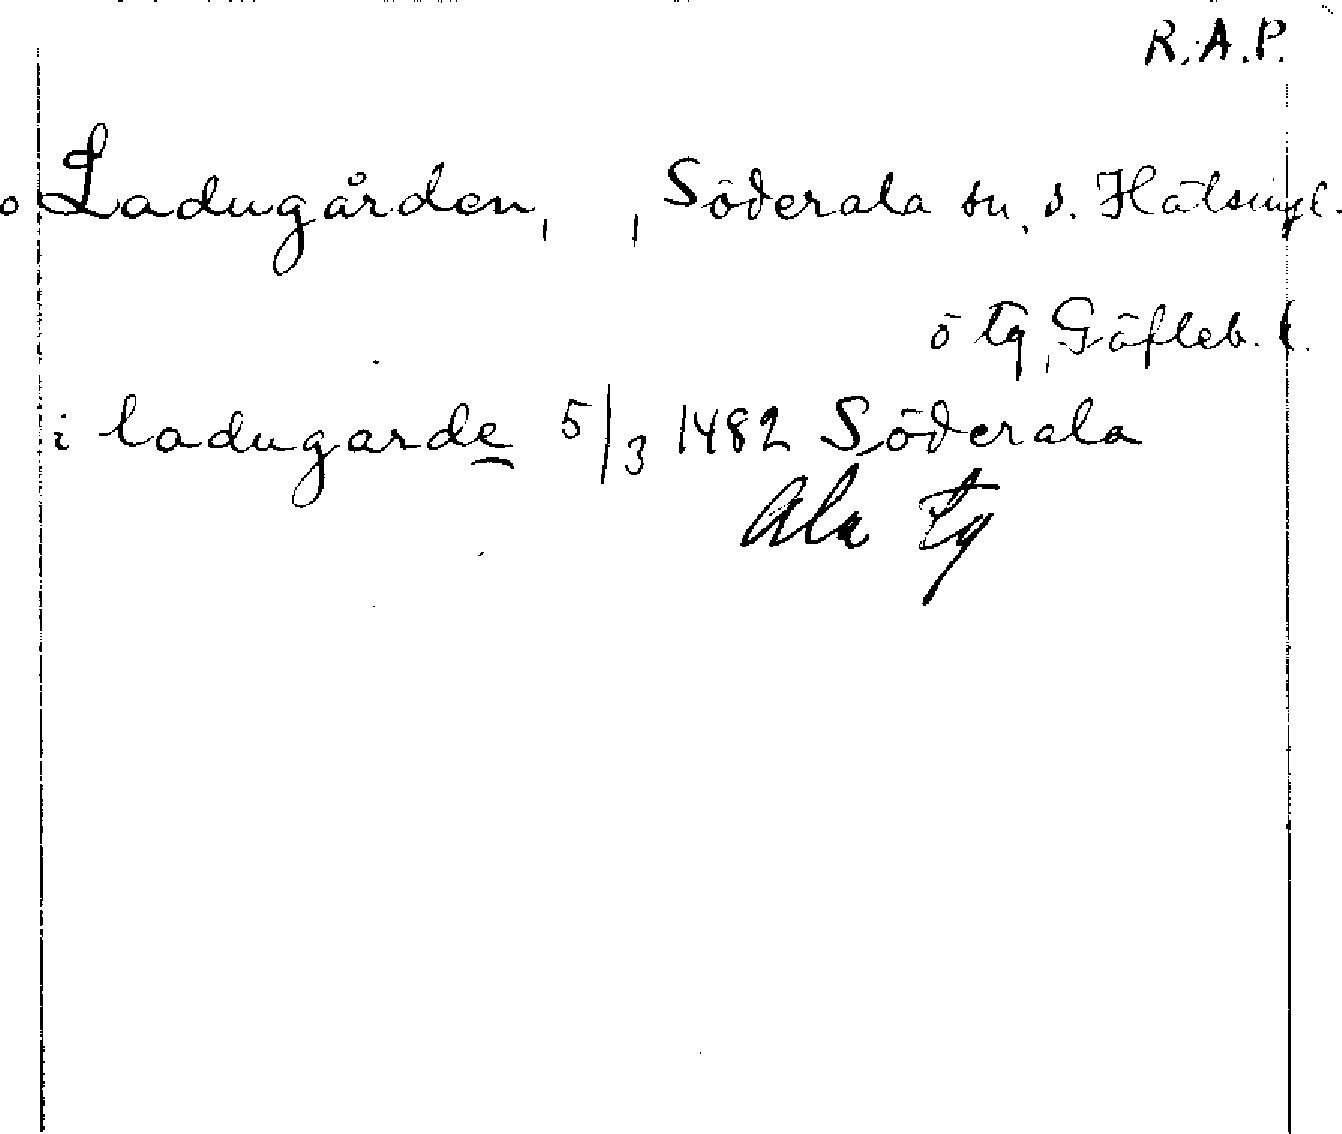 R.A.P.
o Ladugården, , Söderala sn, s. Hälsingl.
ö tg, Gäfleb. l.
i ladugarde 5/3 1482 Söderala
Ala tg